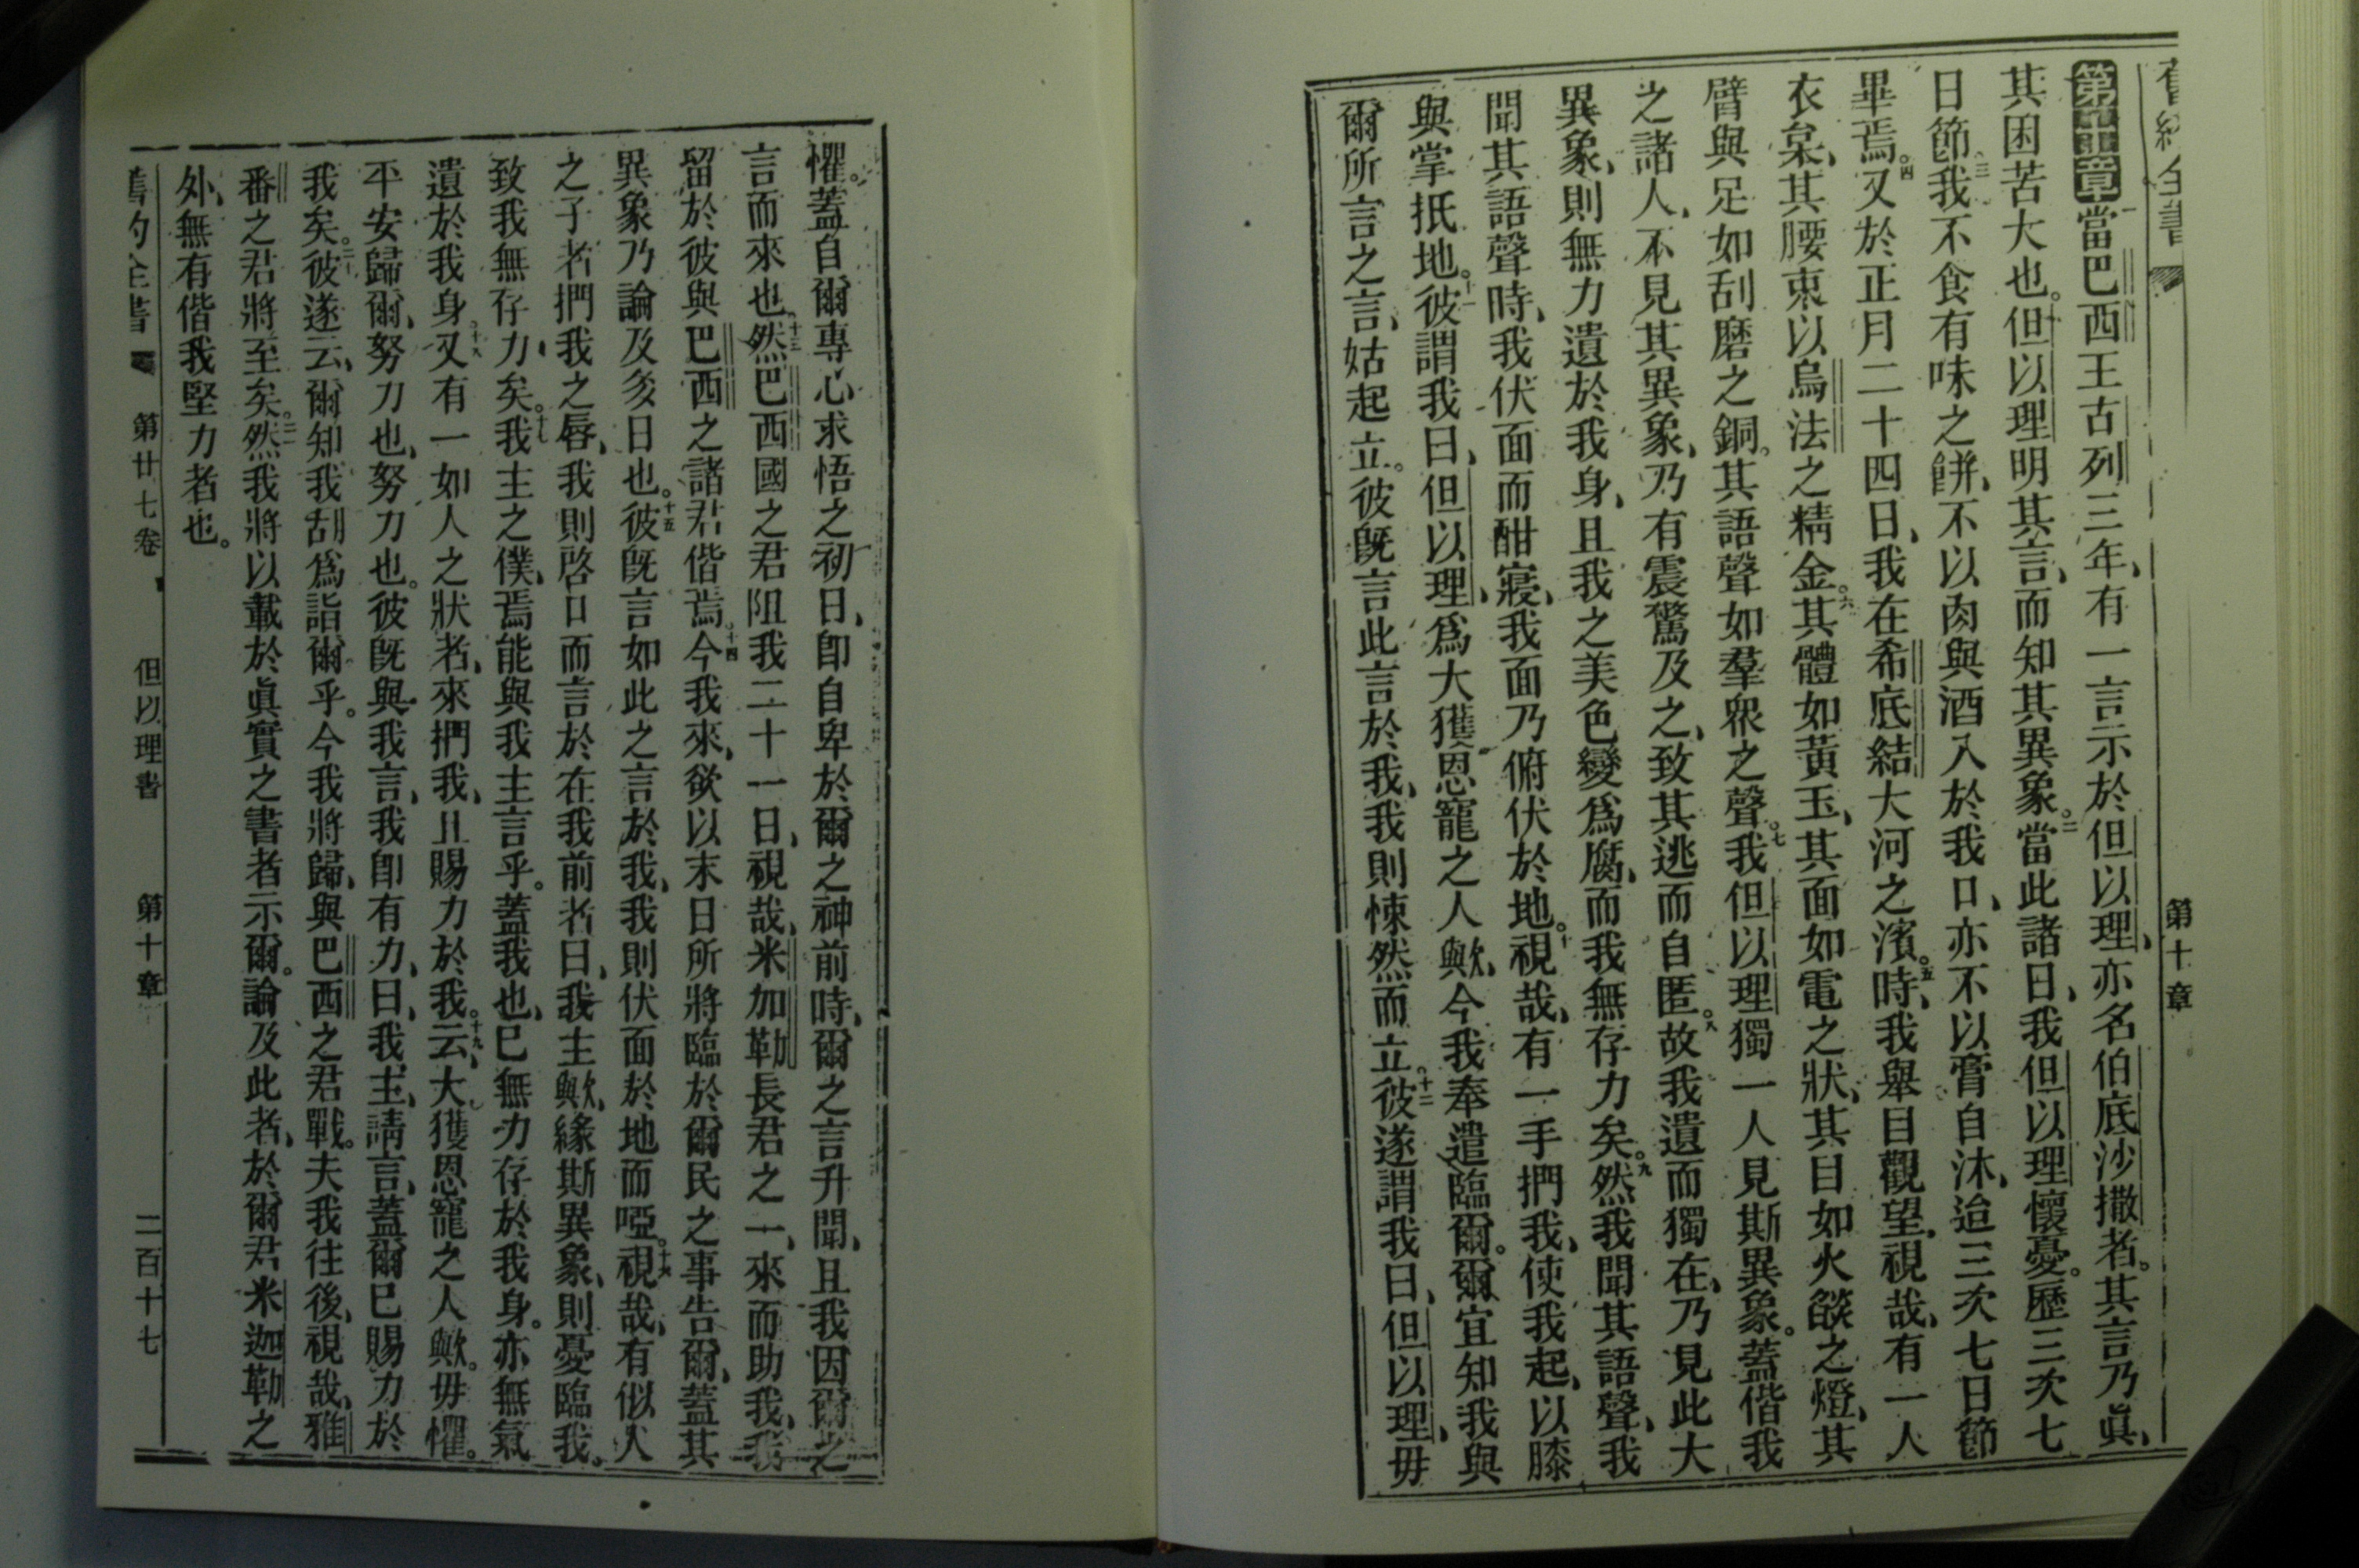 第十章 當巴西王古列三年、有一言示於但以理、亦名伯底沙撒者。其言乃眞、
其困苦大也。但以理明其言、而知其異象。二當此諸日、我但以理懷憂。歷三次七
日節。三我不食有味之餅、不以肉與酒入於我口、亦不以膏自沐、迨三次七日節
畢焉。四又於正月二十四日、我在希底結大河之濱。五時、我舉目觀望。視哉、有一人
衣枲、其腰束以烏法之精金。六其體如黃玉、其面如電之狀、其目如火燄之燈、其
臂與足如刮磨之銅。其語聲如羣衆之聲。七我但以理獨一人見斯異象。蓋偕我
之諸人、不見其異象、乃有震驚及之、致其逃而自匿。八故我遺而獨在、乃見此大
異象、則無力遺於我身、且我之美色變爲腐、而我無存力矣。九然我聞其語聲、我
聞其語聲時、我伏面而酣寢、我面乃俯伏於地。十視哉、有一手捫我、使我起、以膝
與掌抵地。十一彼謂我曰、但以理、爲大獲恩寵之人歟、今我奉遣臨爾。爾宜知我與
爾所言之言、姑起立。彼旣言此言於我、我則悚然而立。十二彼遂謂我曰、但以理、毋
第十章
懼。蓋自爾專心求悟之初日、卽自卑於爾之神前時、爾之言升聞、且我因爾之
言而來也。十三然巴西國之君阻我二十一日、視哉、米加勒長君之一、來而助我、我
留於彼與巴西之諸君偕焉。十四今我來、欲以末日所將臨於爾民之事告爾、蓋其
異象乃論及多日也。十五彼旣言如此之言於我、我則伏面於地而啞。十六視哉、有似人
之子者捫我之唇、我則啓口而言於在我前者曰、我主歟、緣斯異象、則憂臨我。
致我無存力矣。十七我主之僕、焉能與我主言乎。蓋我也、已無力存於我身。亦無氣
遺於我身。十八又有一如人之狀者、來捫我、且賜力於我。十九云、大獲恩寵之人歟。毋懼。
平安歸爾、努力也、努力也。彼旣與我言、我卽有力、曰、我主、請言、蓋爾已賜力於
我矣。二十彼遂云、爾知我胡爲詣爾乎。今我將歸、與巴西之君戰。夫我往後、視哉、雅
番之君將至矣。二一然我將以載於眞實之書者示爾。論及此者、於爾君米迦勒之
外、無有偕我堅力者也。
第廿七卷 但以理書 第十章 二百十七